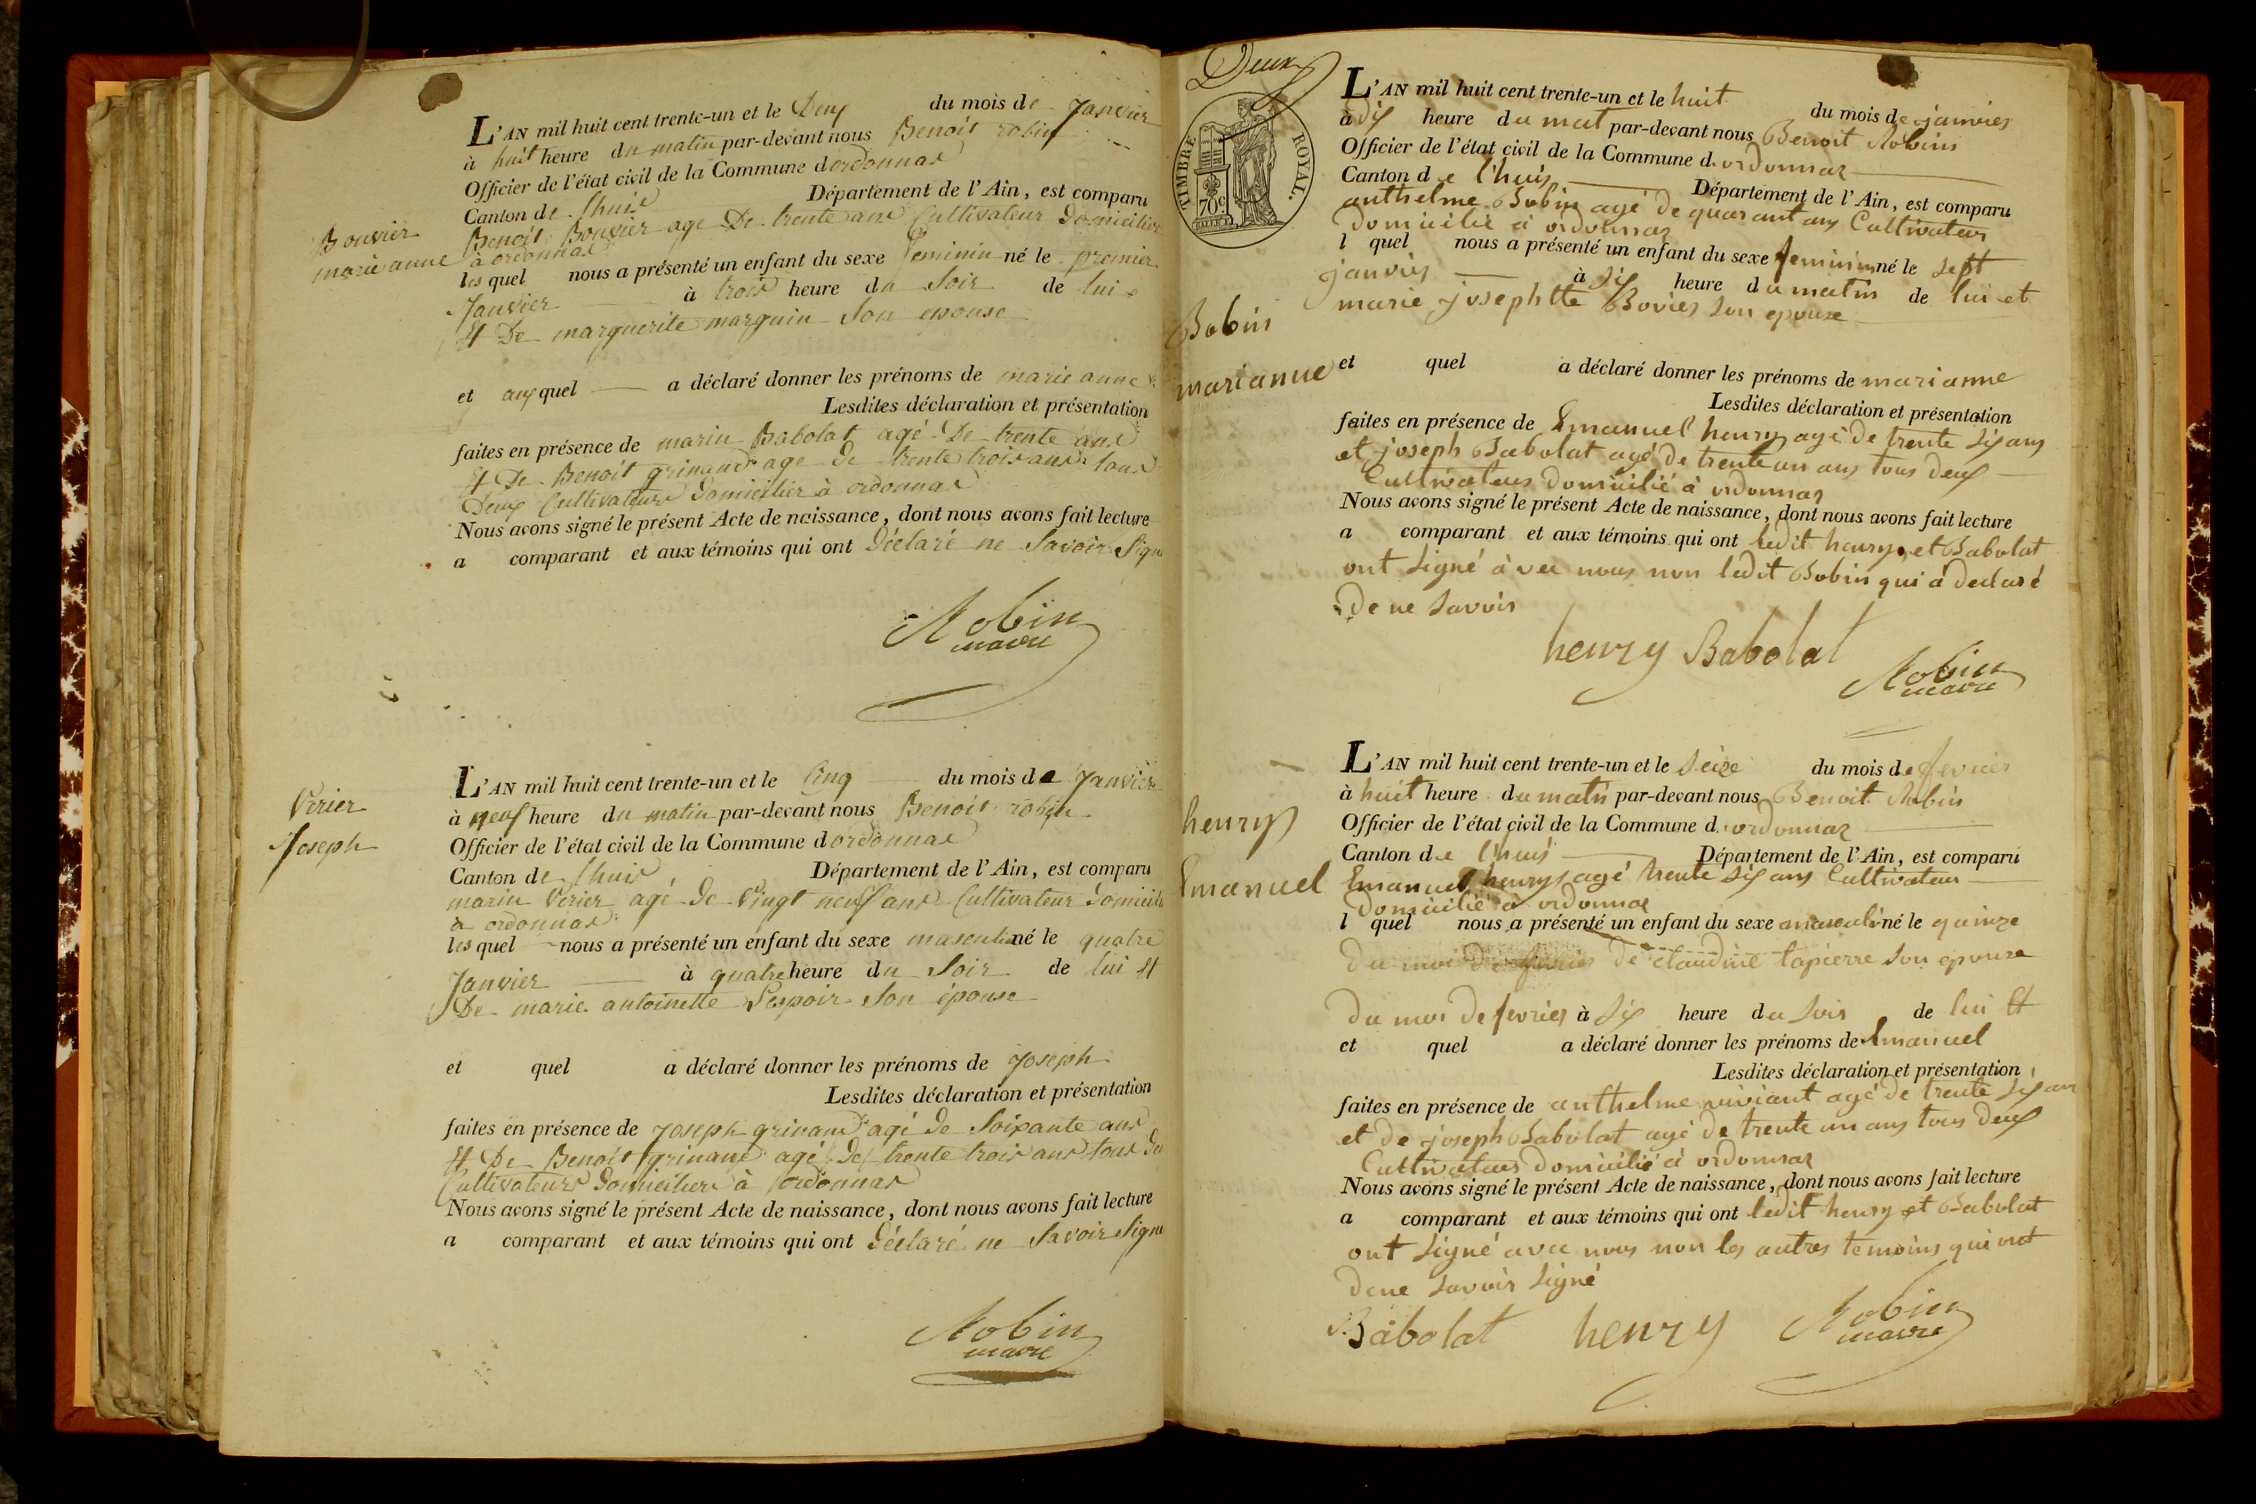 Bouvier
marie anne
L'AN mil huit cent trente-un et le Deux du mois de Janvier
à huit heure du matin par-devant nous Benoit robin
Officier de l'état civil de la Commune d ordonnas
Canton de lhuis Département de l'Ain, est comparu
Benoit Bouvier age De trente ans Cultivateur Domicilier
à ordonnas
lesquel nous a présenté un enfant du sexe feminin né le premier
Janvier à trois heure du Soir de lui
Et De marguerite marguin Son epouse
et auxquel a déclaré donner les prénoms de marie anne
Lesdites déclaration et présentation
faites en présence de marin Babolat agé De trente ans
Et De Benoit grinand age de trente trois ans tous
Deux Cultivateurs Domicilier à ordonnas
Nous avons signé le présent Acte de naissance, dont nous avons fait lecture
a comparant et aux témoins qui ont Déclaré ne Savoir Signe
Robin
maire
Verier
Joseph
L'AN mil huit cent trente-un et le Cinq du mois de Janvier
à neuf heure du matin par-devant nous Benoit robin
Officier de l'état civil de la Commune d ordonnas
Canton de lhuis Département de l'Ain, est comparu
marin Verier agé De Vingt neuf ans Cultivateur Domicilié
a ordonnas
lesquel nous a présenté un enfant du sexe masculin né le quatre
Janvier à quatre heure du Soir de lui Et
De marie antoinette Lespoir Son épouse
et quel a déclaré donner les prénoms de Joseph
Lesdites déclaration et présentation
faites en présence de Joseph grinand agé de Soixante ans
Et De Benoit grinand agé De trente trois ans tous
Cultivateurs Domiciliers à ordonnas
Nous avons signé le présent Acte de naissance, dont nous avons fait lecture
a comparant et aux témoins qui ont Déclaré ne Savoir Signe
Robin
maire
Deux
TIMBRE ROYAL.
70c
L'AN mil huit cent trente-un et le huit du mois de janvier
a dix heure du mat par-devant nous Benoit Robin
Officier de l'état civil de la Commune d ordonnaz
Canton de l'huis Département de l'Ain, est comparu
anthelme Bobin agé de quarant ans Cultivateur
Domicilié à ordonnaz
l quel nous a présenté un enfant du sexe feminin né le sept
janvier à six heure du matin de lui et
marie josephtte Bovier son epouse
Bobin
marianne
et quel a déclaré donner les prénoms de marianne
Lesdites déclaration et présentation
faites en présence de Emanuel henry agé de trente six ans
et joseph Babolat agé de trente un ans tous deux
Cultivateurs domicilié à ordonnaz
Nous avons signé le présent Acte de naissance, dont nous avons fait lecture
a comparant et aux témoins qui ont ledit henry et Babolat
ont signé à vec nous non ledit Bobin qui à declaré
De ne savoir
henry Babolat
Robin
maire
henry
Emanuel
L'AN mil huit cent trente-un et le seize du mois de fevrier
à huit heure du matin par-devant nous Benoit Robin
Officier de l'état civil de la Commune d ordonnaz
Canton de l'huis Département de l'Ain, est comparu
Emanuel henry agé trente six ans Cultivateur
Domicilié à ordonnaz
l quel nous a présenté un enfant du sexe masculi né le quinze
du moi de fevrier de claudine lapierre son epouse
Du moi De fevrier à six heure du soir de lui Et
et quel a déclaré donner les prénoms de Emanuel
Lesdites déclaration et présentation
faites en présence de anthelme viviant agé de trente six ans
et de joseph Babolat agé de trente un ans tous deux
Cultivateurs Domicilié à ordonnaz
Nous avons signé le présent Acte de naissance, dont nous avons fait lecture
a comparant et aux témoins qui ont ledit henry et Babolat
ont signé avec nous non les autres temoins qui ont
de ne savoir signé
Babolat henry Robin
maire